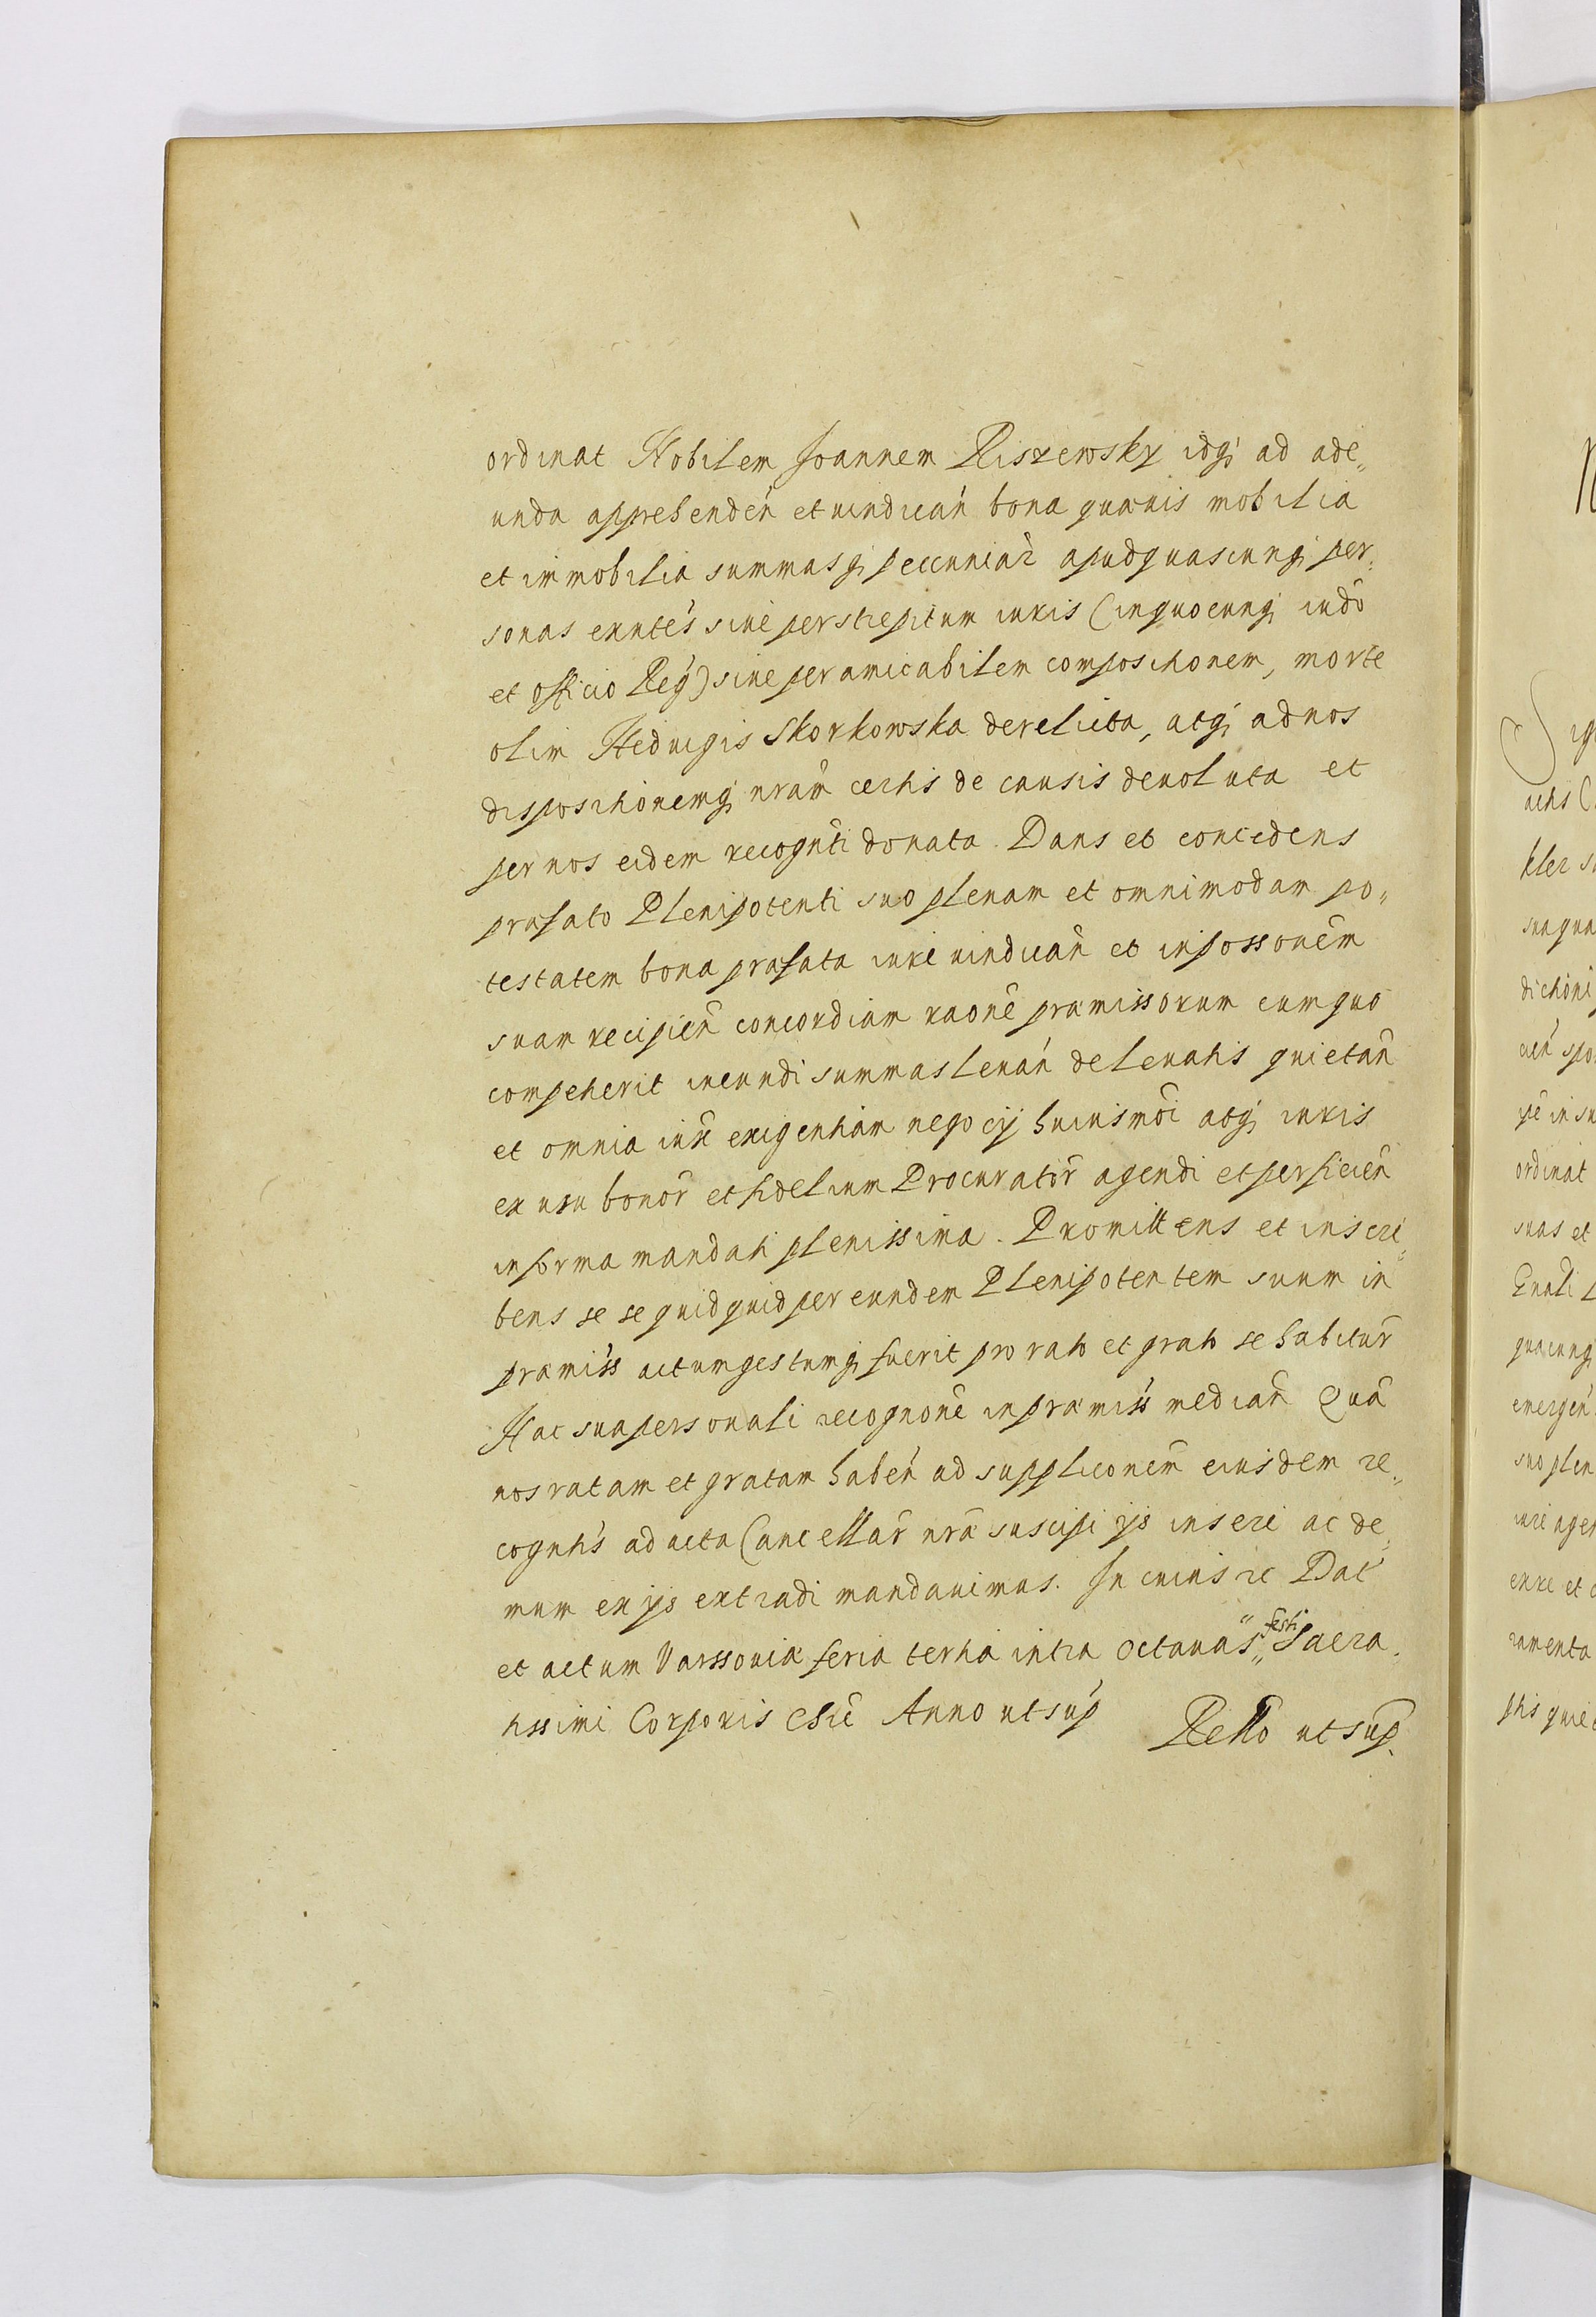 ordinat Nobilem Joannem Riszewsky idq; ad ade„
unda apprehendeñ et uindicañ bona quæuis mobilia
et immobilia summasq; peccuniar̃ apudquascunq; per„
sonas exnte͂s siue perstrepitum iuris (inquocunq; iud̃o
et officio Regÿ) siue per amicabilem compositionem, morte
olim Heduigis Skorkowska derelicta, atq; adnos
dispositionemq; nram̃ certis de causis deuoluta et
per nos eidem recognti donata. Dans et concedens
præfato Plenipotenti suo plenam et omnimodam po„
testatem bona præfata iure uindicañ et inpossonem̃
suam recipieñ concordiam raone͂ præmissorum cum quo
competierit ineundi summas leuañ de leuatis quietañ
et omnia iuxe͂ exigentiam negocÿ huiusmo͂i atq; iuris
ex usu bonor̃ et fidelium Procurator̃ agendi et perficieñ
in forma mandati plenissima. Promittens et inscri„
bens se se quidquid per eundem Plenipotentem suum in
præmiss̃ actum gestumq; fuerit pro rato et grato se habitur̃
Hac sua personali recognone͂ in præmiss̃ median͂ Qua͂
nos ratam et gratam habeñ ad supplicone͂m eiusdem re„
cognti͂s ad acta Cancellar̃ nræ͂ suscipi ÿs inseri ac de„
mum ex ÿs extradi mandauimus. In cuius re͂ Dat͂
et actum Varssouiæ feria tertia intra octauas festi Sacra„
tissimi Corporis Chri͂ Anno utsup͂
Rello͂ ut sup͂.